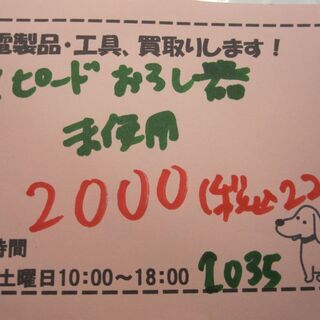 電製品・工具、買取りします！
ピード おろし器
未使用
2000(税込22
時間
土曜日10:00～18:00 1035